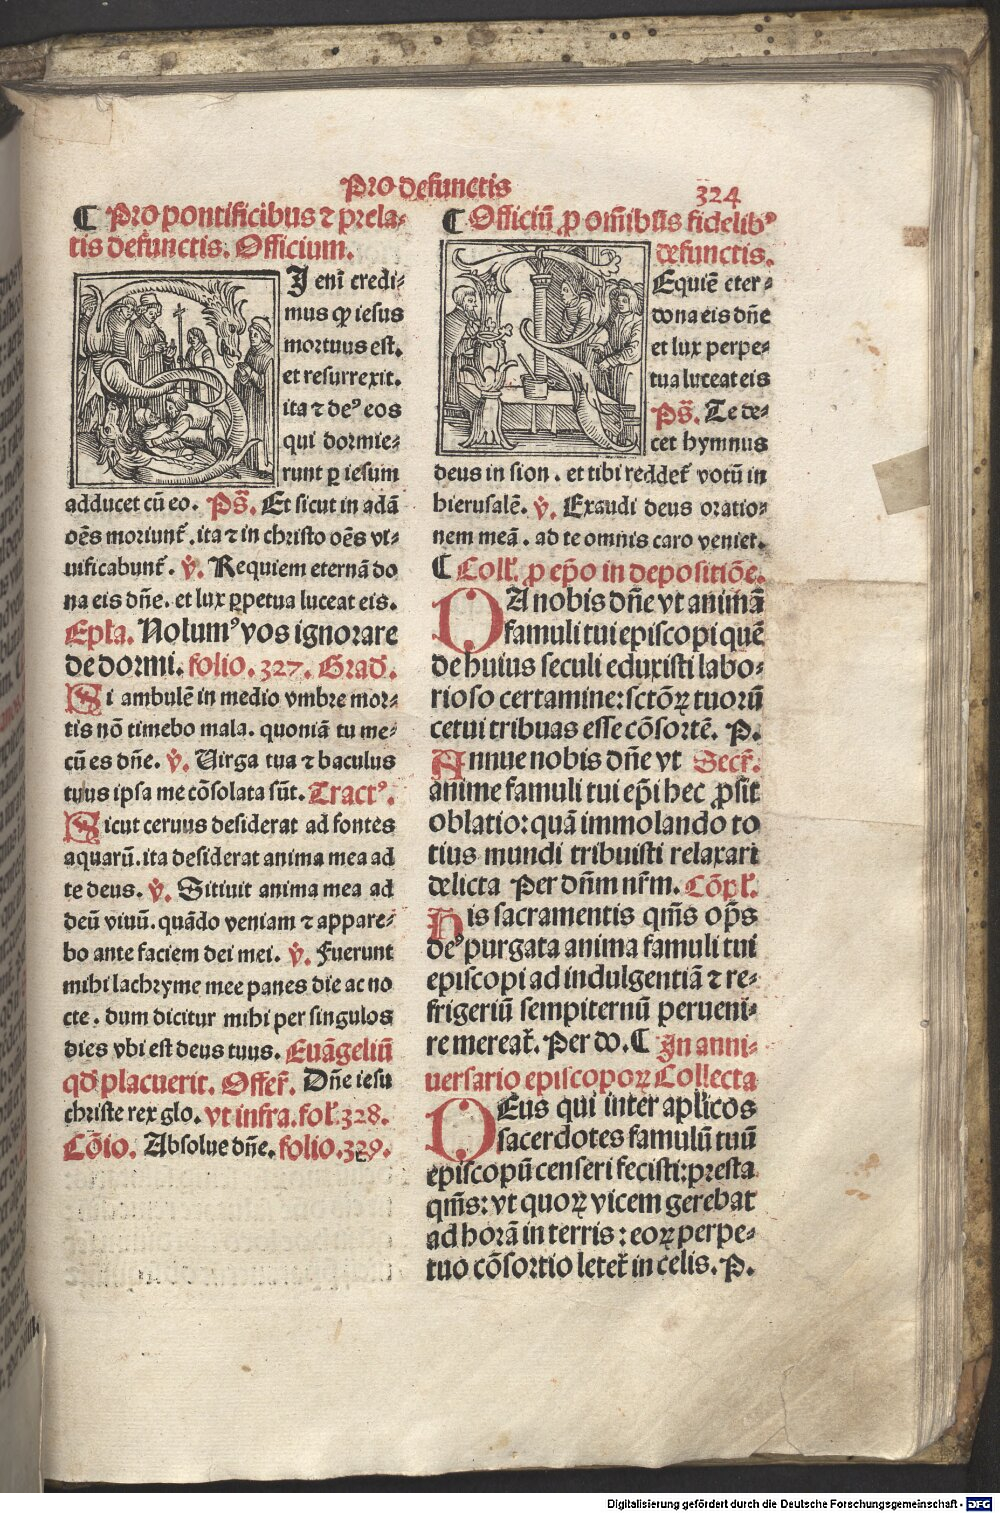 Pro defunctis
324
¶ Pro pontificibus ⁊ prela-
tis defunctis. Officium.
SI eni᷑ credi-
mus ꝙ iesus
mortuus est.
et resurrexit.
ita ⁊ deꝰ eos
qui dormie-
runt ꝑ iesum
adducet cū eo. Ps̄. Et sicut in adā
oēs moriunt᷑. ita ⁊ in christo oēs vi-
uificabunt᷑. v̄. Requiem eternā do
na eis dn̄e. et lux ꝑpetua luceat eis.
Epl̄a. Nolumꝰ vos ignorare
de dormi. folio. 327. Grad̄.
Si ambulē in medio vmbre mor-
tis nō timebo mala. quoniā tu me-
cū es dn̄e. v̄. Uirga tua ⁊ baculus
tuus ipsa me cōsolata sūt. Tractꝰ.
Sicut ceruus desiderat ad fontes
aquarū. ita desiderat anima mea ad
te deus. v̄. Sitiuit anima mea ad
deū viuū. quādo veniam ⁊ appare-
bo ante faciem dei mei. v̄. Fuerunt
mihi lachryme mee panes die ac no
cte. dum dicitur mihi per singulos
dies vbi est deus tuus. Euāgeliū
qd̄ placuerit. Offer̄. Dn̄e iesu
christe rex glo. vt infra. fol̄. 328.
Cōio. Absolue dn̄e. folio. 329.
¶ Officiū ꝓ om̄ibus fidelibꝰ
defunctis.
REquiē eter-
dona eis dn̄e
et lux perpe-
tua luceat eis
Ps̄. Te de-
cet hymnus
deus in sion. et tibi reddet᷑ votū in
hierusalē. v̄. Exaudi deus oratio-
nem meā. ad te omnis caro veniet.
¶ Coll̄. ꝓ ep̄o in depositiōe.
DA nobis dn̄e vt animā
famuli tui episcopi quē
de huius seculi eduxisti labo-
rioso certamine: sctōꝝ tuorū
cetui tribuas esse cōsortē. P.
Annue nobis dn̄e vt Secr̄.
anime famuli tui ep̄i hec ꝓsit
oblatio: quā immolando to
tius mundi tribuisti relaxari
delicta Per dn̄m nr̄m. Cōpl̄.
His sacramentis qm̄s op̄s
deꝰ purgata anima famuli tui
episcopi ad indulgentiā ⁊ re-
frigeriū sempiternū perueni-
re mereat᷑. Per do. ¶ In anni-
uersario episcopoꝝ Collecta
DEus qui inter apl̄icos
sacerdotes famulū tuū
episcopū censeri fecisti: presta
qm̄s: vt quoꝝ vicem gerebat
ad horā in terris: eoꝝ perpe-
tuo cōsortio letet᷑ in celis. P.
Digitalisierung gefördert durch die Deutsche Forschungsgemeinschaft - DFG